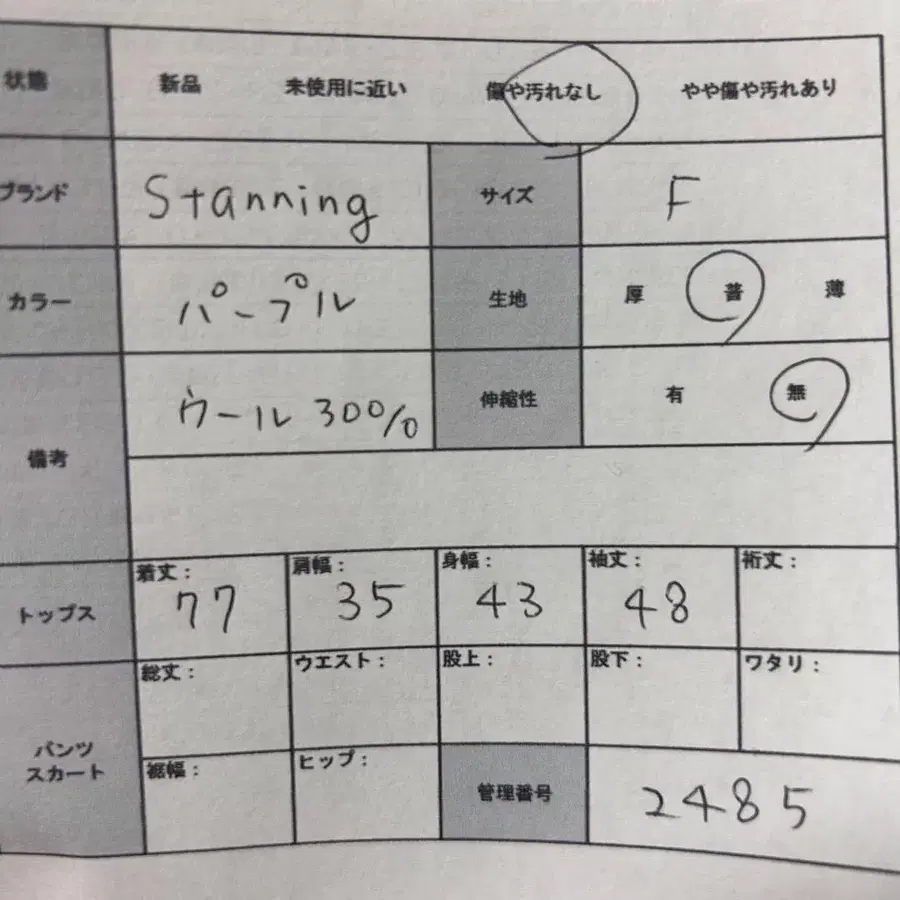 状態 新品 未使用に近い 傷や汚れなし やや傷や汚れあり
ブランド Stanning サイズ F
カラー パープル 生地 厚 普 薄
備考 ウール 300% 伸縮性 有 無
トップス 着丈: 77 肩幅: 35 身幅: 43 袖丈: 48 裄丈:
パンツ スカート 総丈: ウエスト: 股上: 股下: ワタリ:
裾幅: ヒップ: 管理番号 2485